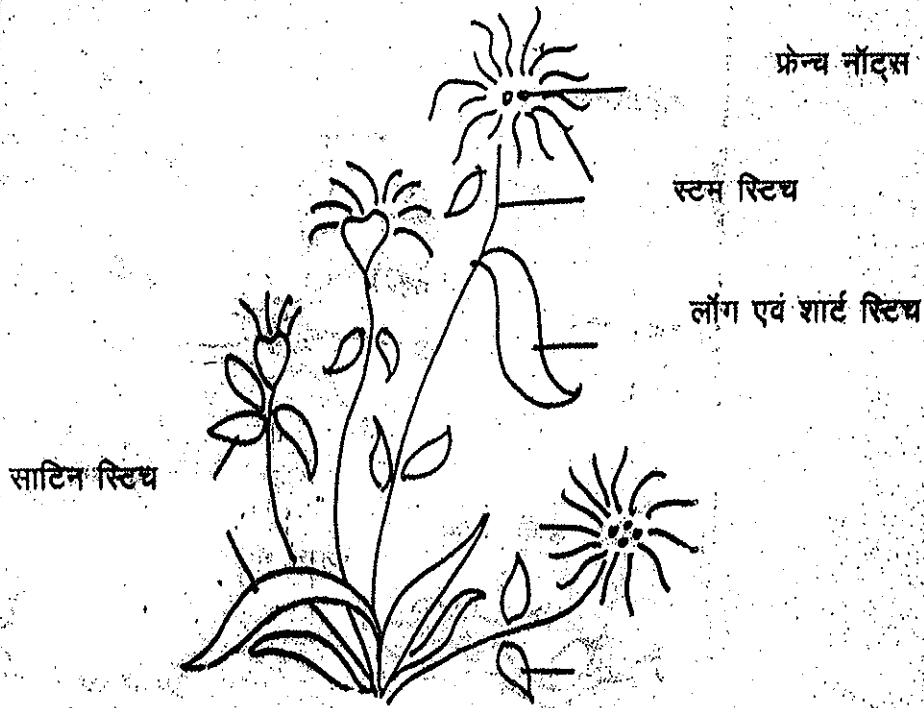 फ्रेन्च नॉट्स
स्टम स्टिच
लॉग एवं शार्ट स्टिच
साटिन स्टिच